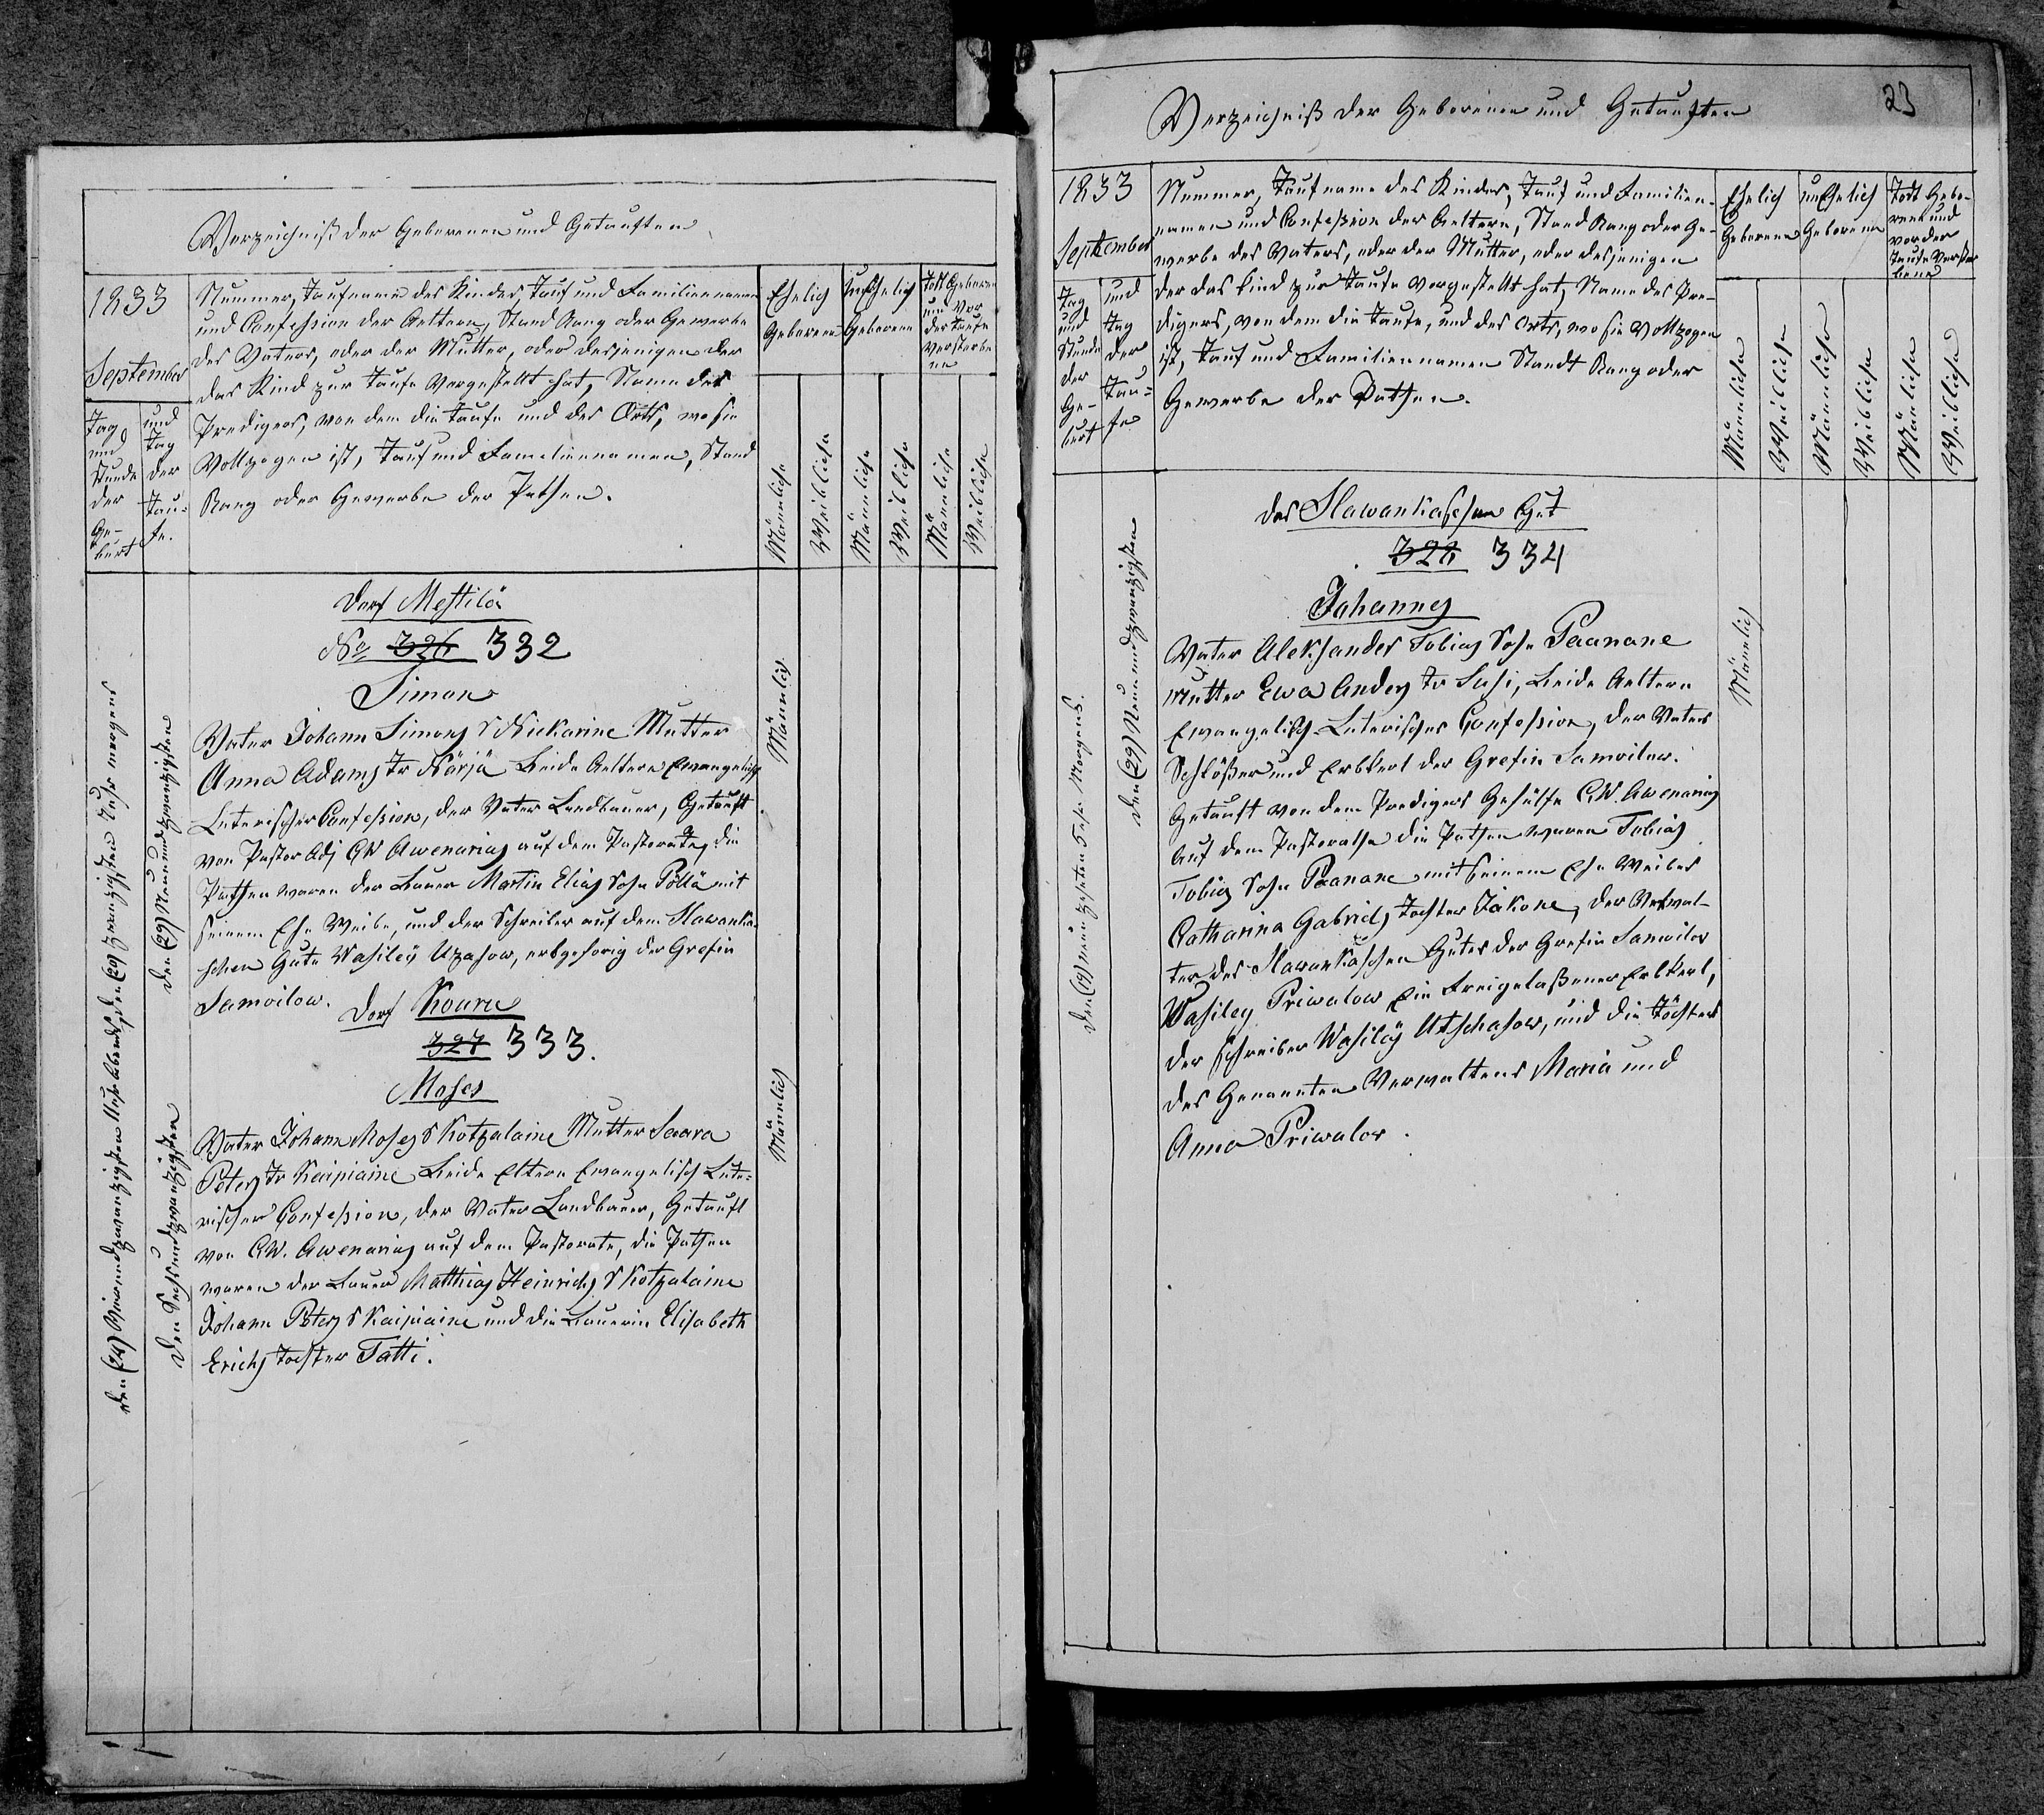 Verzeichniß der Geborenen und Getauften
1833
September
Tag
und
Stunde
der
Ge-
burt
und
Tag
der
Tau-
fe.
Nummer, Taufname des Kindes, Tauf und Familiennamen
und Confession der Aeltern, Stand Rang oder Gewerbe
des Vaters, oder der Mutter, oder desjenigen der
das Kind zur Taufe vorgestellt hat, Name des
Predigers, von dem die Taufe und des Orts, wo sie
Vollzogen ist, Tauf und Familiennamen, Stand
Rang oder Gewerbe der Pathen.
Ehelich
Geborene
unEhelich
Geborene
Todt Geborene
und Vor
der Taufe
verstorbe
ne
Männliche
Weibliche
Männliche
Weibliche
Männliche
Weibliche
den (24) Vierundzwanzigsten Uhr Abends, den (20) zwanzigsten Uhr morgens
den Sechsundzwanzigsten
den (29) Neunundzwanzigsten
Dorf Mestilä
No 326 332
Simon
Vater Johann Simons S Niekarine Mutter
Anna Adams Tr Närjä beide Aeltern Ewangelisch
Luterischer Confession, der Vater Landbauer, Getauft
von Pastor Adj CW Awenarius auf dem Pastorate, die
Pathen waren der Bauer Martin Elias Sohn Pöllä mit
seinem Ehe Weibe, und der Schreiber auf dem Slawanka-
schen Gute Wasileÿ Uzasow, erbgehorig der Grefin
Samoilow.
Männlich
Dorf Kouru
327 333.
Moses
Vater Johann Moses S Kotzalaine Mutter Saara
Peters Tr Kaipiaine beide Eltern Ewangelisch Lute-
rischer Confession, der Vater Landbauer, Getauft
von CW. Awenarius auf dem Pastorate, die Pathen
waren der Bauer Matthias Heinrichs S Kotzalaine
Johann Peters S Kaipiaine und die Bauerin Elisabeth
Erichs Tochter Tatti.
Männlich
23
Verzeichniß der Geborenen und Getauften
1833
September
Tag
und
Stunde
der
Ge-
burt
und
Tag
der
Tau-
fe
Nummer, Taufname des Kindes, Tauf und Familien-
namen und Confession der Aeltern, Stand Rang oder Ge-
werbe des Vaters, oder der Mutter, oder desjenigen
der das Kind zur Taufe vorgestellt hat, Name des Pre-
digers, von dem die Taufe, und des Orts, wo sie Vollzogen
ist, Tauf und Familiennamen Standt Rang oder
Gewerbe der Pathen.
Ehelich
Geborene
unEhelich
Geborene
Todt Gebo-
rene und
vor der
Taufe Verstor
bene
Männliche
Weibliche
Männliche
Weibliche
Männliche
Weibliche
den (19) neunzehnten Morgens.
den (29) Neunundzwanzigsten
das Slawankasche Gut
328 334
Johannes
Vater Aleksander Tobias Sohn Paanane
Mutter Ewa Anders Tr Susi, beide Aeltern
Ewangelisch-Luterischer Confession, der Vater
Schloßer und Erbkerl der Grefin Samoilow.
Getauft von dem Predigers Gehülfe CW. Awenarius
auf dem Pastorathe die Pathen waren Tobias
Tobias Sohn Paanane mit seinem Ehe Weibes
Catharina Gabriels Tochter Jäkone, der Verwal-
ter des Slawankaschen Gutes der Grefin Samoilow
Wasiley Priwalow Ein Freigelaßener Erbkerl,
der Schreiber Wasileÿ Utschasow, und die Töchter
des Genannten Verwalters Maria und
Anna Priwalow.
Männlich